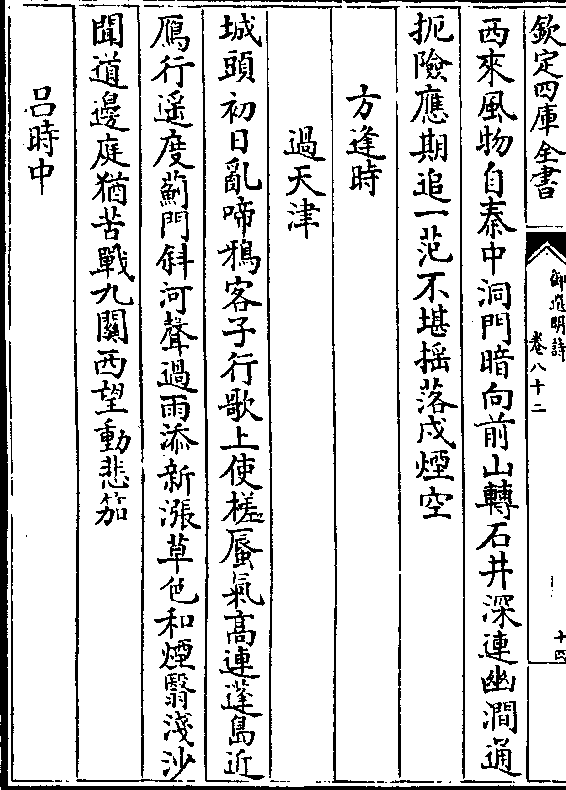 欽定四庫全書
御選明詩
卷八十二
十四
西來風物自秦中洞門暗向前山轉石井深連幽澗通
扼險應期追一范不堪揺落戍煙空
方逢時
過天津
城頭初日亂啼鴉客子行歌上使槎蜃氣高連蓬島近
鴈行遥度薊門斜河聲過雨添新漲草色和煙翳淺沙
聞道邊庭猶苦戰九關西望動悲笳
吕時中